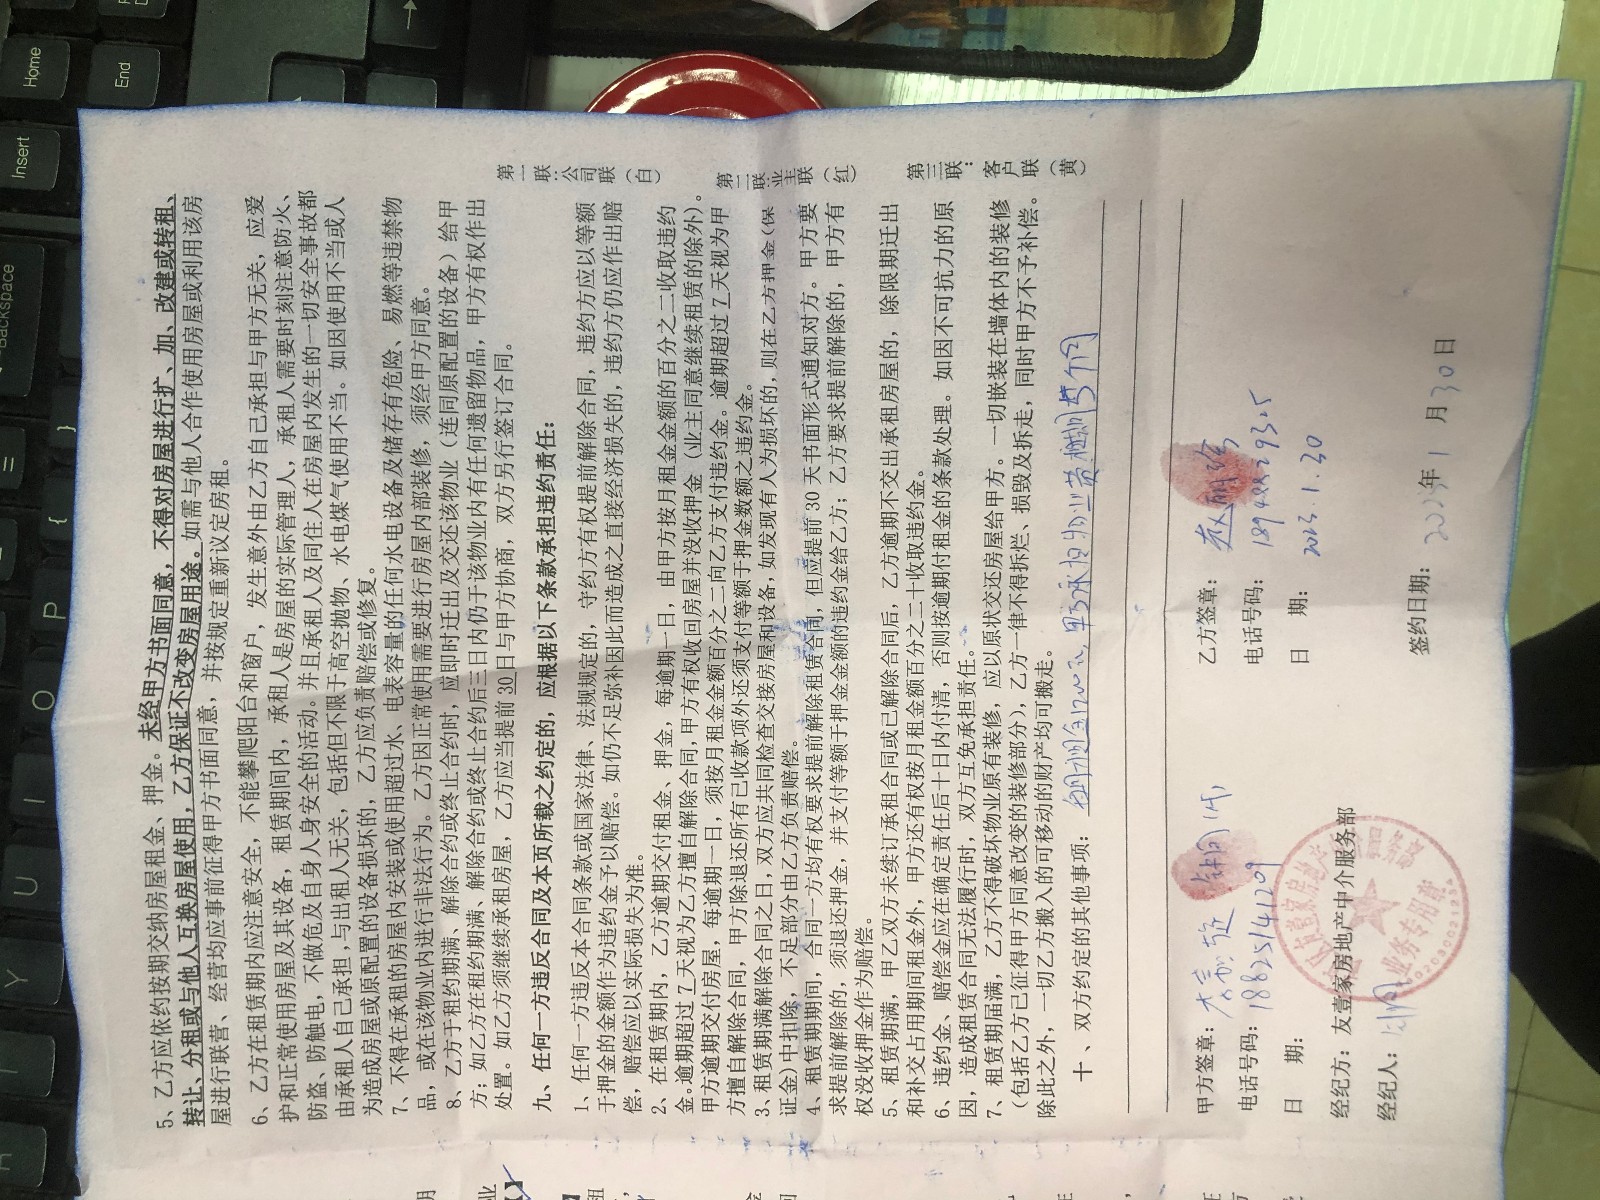 5、乙方应依约按期交纳房屋租金、押金。未经甲方书面同意，不得对房屋进行扩、加、改建或转租、
转让、分租或与他人互换房屋使用，乙方保证不改变房屋用途。如需与他人合作使用房屋或利用该房
屋进行联营、经营均应事前征得甲方书面同意，并按规定重新议定房租。
6、乙方在租赁期内应注意安全，不能攀爬阳台和窗户，发生意外由乙方自己承担与甲方无关，应爱
护和正常使用房屋及其设备，租赁期间内，承租人是房屋的实际管理人，承租人需要时刻注意防火、
防盗、防触电，不做危及自身人身安全的活动。并且承租人及同住人在房屋内发生的一切安全事故都
由承租人自己承担，与出租人无关，包括但不限于高空抛物、水电煤气使用不当。如因使用不当或人
为造成房屋或原配置的设备损坏的，乙方应负责赔偿或修复。
7、不得在承租的房屋内安装或使用超过水、电表容量的任何水电设备及储存有危险、易燃等违禁物
品，或在该物业内进行非法行为。乙方因正常使用需要进行房屋内部装修，须经甲方同意。
8、乙方于租约期满、解除合约或终止合约时，应即时迁出及交还该物业（连同原配置的设备）给甲
方；如乙方在租约期满、解除合约或终止合约后三日内仍于该物业内有任何遗留物品，甲方有权作出
处置。如乙方须继续承租房屋，乙方应当提前 30 日与甲方协商，双方另行签订合同。
九、任何一方违反合同及本页所载之约定的，应根据以下条款承担违约责任：
1、任何一方违反本合同条款或国家法律、法规规定的，守约方有权提前解除合同，违约方应以等额
于押金的金额作为违约金予以赔偿。如仍不足弥补因此而造成之直接经济损失的，违约方仍应作出赔
偿，赔偿应以实际损失为准。
2、在租赁期内，乙方逾期交付租金、押金，每逾期一日，由甲方按月租金金额的百分之二收取违约
金。逾期超过 7 天视为乙方擅自解除合同，甲方有权收回房屋并没收押金（业主同意继续租赁的除外）。
甲方逾期交付房屋，每逾期一日，须按月租金金额百分之二向乙方支付违约金。逾期超过 7 天视为甲
方擅自解除合同，甲方除退还所有已收款项外还须支付等额于押金数额之违约金。
3、租赁期满解除合同之日，双方应共同检查交接房屋和设备，如发现有人为损坏的，则在乙方押金（保
证金）中扣除，不足部分由乙方负责赔偿。
4、租赁期期间，合同一方均有权要求提前解除租赁合同，但应提前 30 天书面形式通知对方。甲方要
求提前解除的，须退还押金，并支付等额于押金金额的违约金给乙方；乙方要求提前解除的，甲方有
权没收押金作为赔偿。
5、租赁期满，甲乙双方未续订承租合同或已解除合同后，乙方逾期不交出承租房屋的，除限期迁出
和补交占用期间租金外，甲方还有权按月租金额百分之二十收取违约金。
6、违约金、赔偿金应在确定责任后十日内付清，否则按逾期付租金的条款处理。如因不可抗力的原
因，造成租赁合同无法履行时，双方互免承担责任。
7、租赁期届满，乙方不得破坏物业原有装修，应以原状交还房屋给甲方。一切嵌装在墙体内的装修
（包括乙方已征得甲方同意改变的装修部分），乙方一律不得拆烂、损毁及拆走，同时甲方不予补偿。
除此之外，一切乙方搬入的可移动的财产均可搬走。
十、双方约定的其他事项：
第一联：公司联（白）
第二联：业主联（红）
第三联：客户联（黄）
甲方签章：
电话号码：18825141209
日 期：
乙方签章：
电话号码：
日 期：2023.1.30
经纪方：友壹家房地产中介服务部
经纪人：
签约日期：2023年1月30日
业务专用章
Home
End
Insert
Backspace
P
O
I
U
Y